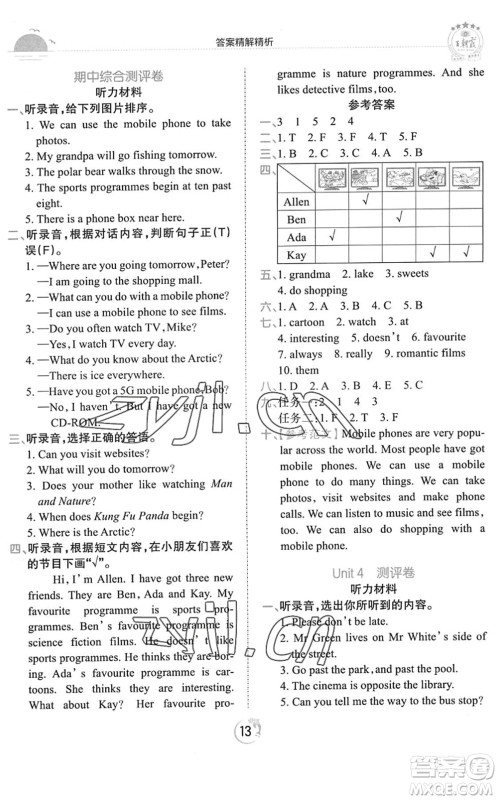 答案精解精析
期中综合测评卷
听力材料
一、听录音,给下列图片排序。
1. We can use the mobile phone to take
photos.
2. My grandpa will go fishing tomorrow.
3. The polar bear walks through the snow.
4. The sports programmes begin at ten past
eight.
5. There is a phone box near here.
二、听录音,根据对话内容,判断句子正(T)
误(F)。
1. —Where are you going tomorrow, Peter?
—I am going to the shopping mall.
2. —What can you do with a mobile phone?
—I can take pictures.
3. —Do you often watch TV, Mike?
—Yes, I watch TV every day.
4. —What do you know about the Arctic?
—There is ice everywhere.
5. —Have you got a 5G mobile phone, Bob?
—No, I haven't. But I have a new
CD-ROM.
三、听录音,选择正确的答语。
1. Can you visit websites?
2. What will you do tomorrow?
3. Does your mother like watching Man
and Nature?
4. When does Kung Fu Panda begin?
5. Where is the Arctic?
四、听录音,根据短文内容,在小朋友们喜欢
的节目下画"√"。
Hi, I'm Allen. I have got some new
friends. They are Ben, Ada and Kay. My
favourite programme is sports pro-
gramme. Ben's favourite programme is
science fiction films. He doesn't like
them because he thinks they are bor-
ing. Ada's favourite programme is car-
toons. She thinks they are interesting.
What about Kay? Her favourite pro-
gramme is nature programmes. And she
likes detective films, too.
参考答案
一、3 1 5 2 4
二、1. T 2. F 3. T 4. T 5. F
三、1. B 2. C 3. A 4. C 5. B
四、
Allen √
Ben √
Ada √
Kay √ √
五、1. grandma 2. lake 3. sweets
4. do shopping
六、1. A 2. B 3. C 4. A 5. B
七、1. cartoon 2. watch 3. at
4. interesting 5. doesn't 6. favourite
7. always 8. really 9. romantic films
10. them
八、1. D 2. A 3. F 4. C 5. B
九、任务一:2 1 4 3
任务二:1. F 2. T 3. T 4. T 5. F
十、【参考范文】Mobile phones are very popu-
lar across the world. Most people have got
mobile phones. We can use a mobile
phone to do many things. We can take
photos, visit websites and make phone
calls. We can listen to music and send
emails. We can also do shopping with a
mobile phone.
Unit 4 测评卷
听力材料
一、听录音,选出你所听到的内容。
1. Please don't be late.
2. Mr Green lives on Mr White's side of
the street.
3. Go past the park, and past the pool.
4. The cinema is opposite the library.
5. Can you tell me the way to the bus stop?
13
zyjl.cn
zyjl.cn
答案圈
MXQE.COM